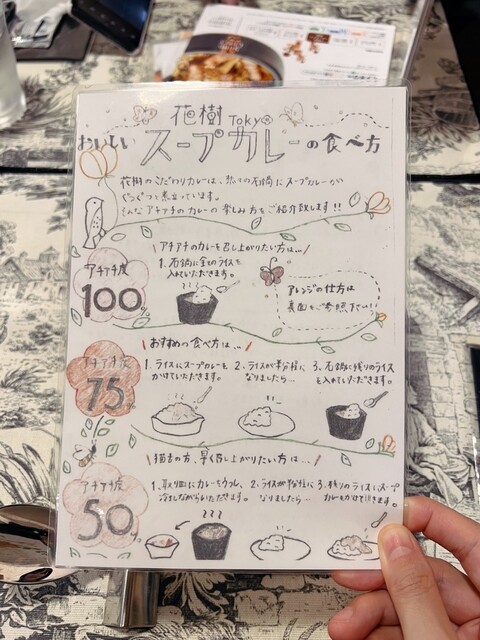 花樹 TOKYO
おいしい スープカレーの食べ方
花樹のこだわりカレーは、熱々の石鍋にスープカレーが
ぐつぐつと煮立っています。
そんなアチアチのカレーの楽しみ方をご紹介致します!!
\アチアチのカレーを召し上がりたい方は…/
アチアチ度
100%
1. 石鍋に全てのライスを
入れていただきます。
アレンジの仕方は
裏面をご参照下さい!
\おすすめの食べ方は…/
アチアチ度
75%
1. ライスにスープカレーを
かけていただきます。
2. ライスが半分程に
なりましたら…
3. 石鍋に残りのライス
を入れていただきます。
\猫舌の方、早く召し上がりたい方は…/
アチアチ度
50%
1. 取り皿にカレーをうつし、
冷ましながらいただきます。
2. ライスが半分程に
なりましたら…
3. 残りのライスにスープ
カレーをかけて頂きます。